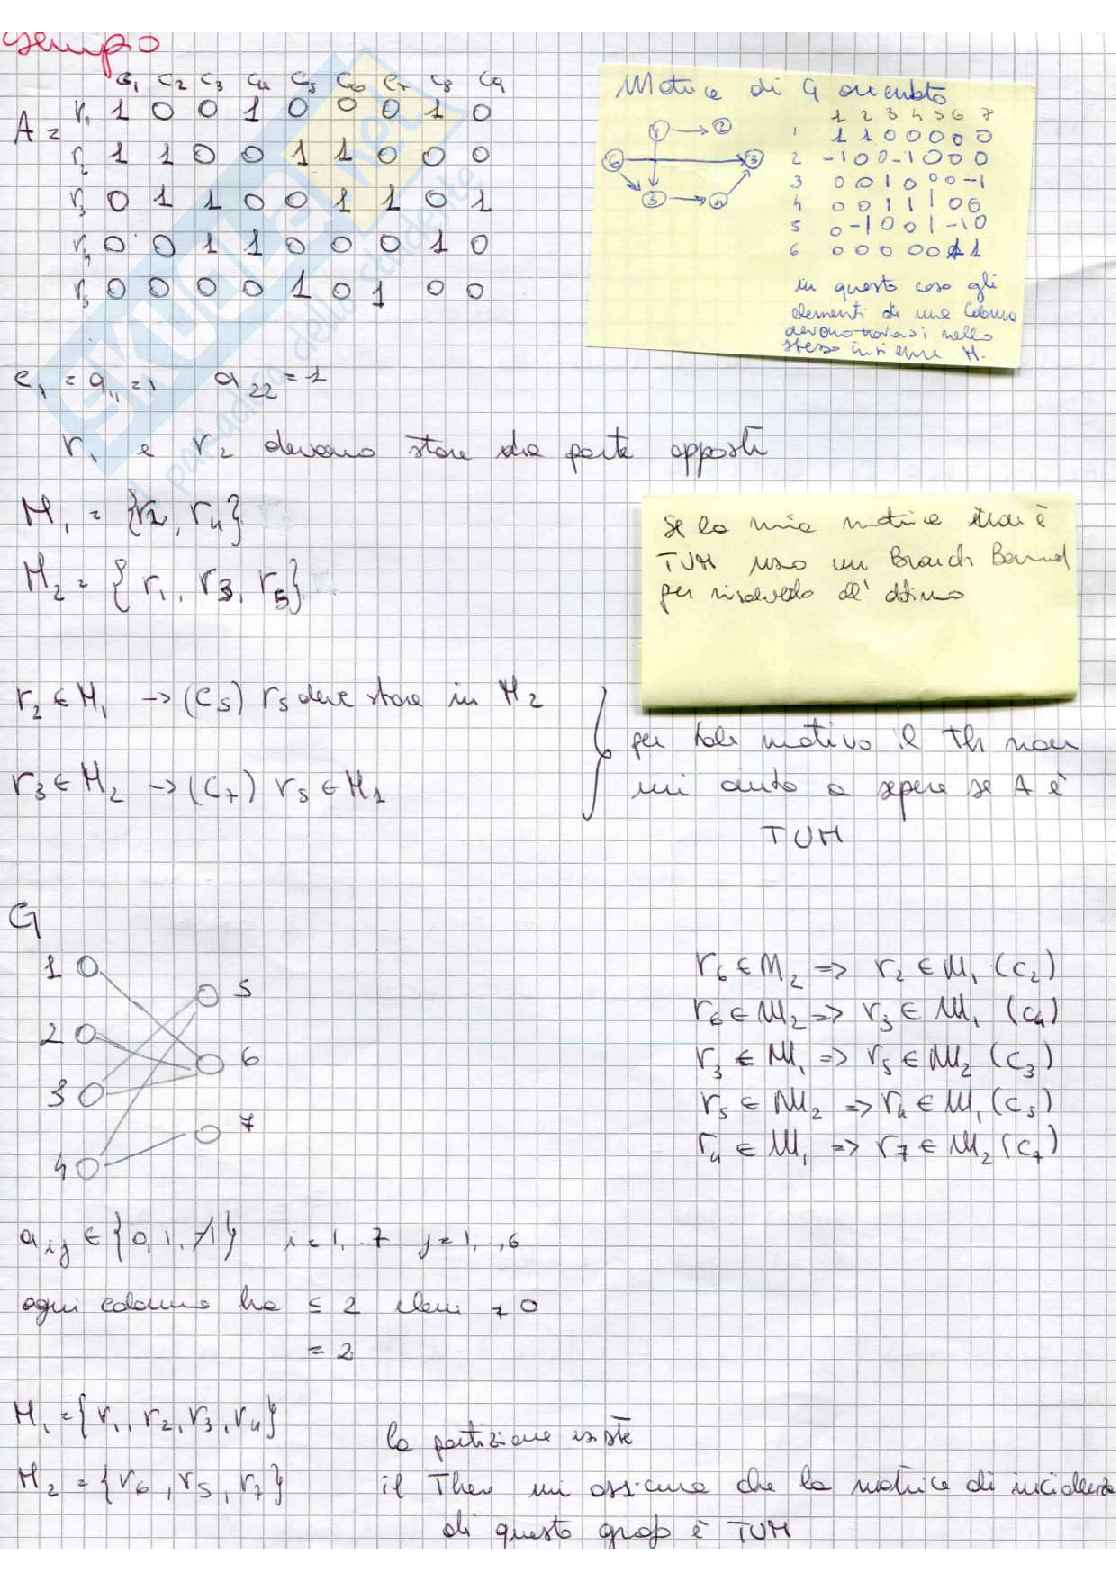 esempio
c1 c2 c3 c4 c5 c6 c7 c8 c9
A = r1 1 0 0 1 0 0 0 1 0
r2 1 1 0 0 1 1 0 0 0
r3 0 1 1 0 0 1 1 0 1
r4 0 0 1 1 0 0 0 1 0
r5 0 0 0 0 1 0 1 0 0
Matrice di G orientato
1 2 3 4 5 6 7
1 1 1 0 0 0 0 0
2 -1 0 0 -1 0 0 0
3 0 0 1 0 0 0 -1
4 0 0 1 1 1 0 0
5 0 -1 0 0 1 -1 0
6 0 0 0 0 0 1 1
1 2
6 3
5 4
in questo caso gli
elementi di una colonna
devono trovarsi nello
stesso insieme M.
c1 = a11 = 1 a22 = 1
r1 e r2 devono stare da parte opposte
M1 = {r2, r4}
M2 = {r1, r3, r5}
Se la mia matrice non è
TUM uso un Branch Bound
per risolverlo all'ottimo
r2 ∈ M1 -> (c5) r5 deve stare in M2
r3 ∈ M2 -> (c7) r5 ∈ M1
per tale motivo il Th non
mi aiuta a sapere se A è
TUM
G
1
2
3
4
5
6
7
r6 ∈ M2 => r2 ∈ M1 (c2)
r6 ∈ M2 => r3 ∈ M1 (c4)
r3 ∈ M1 => r5 ∈ M2 (c3)
r5 ∈ M2 => r4 ∈ M1 (c5)
r4 ∈ M1 => r7 ∈ M2 (c7)
aij ∈ {0, 1, -1} i = 1, 7 j = 1, ,6
ogni colonna ha ≤ 2 elem ≠ 0
= 2
M1 = {r1, r2, r3, r4}
M2 = {r6, r5, r7}
la partizione esiste
il Theo mi assicura che la matrice di incidenza
di questo grafo è TUM